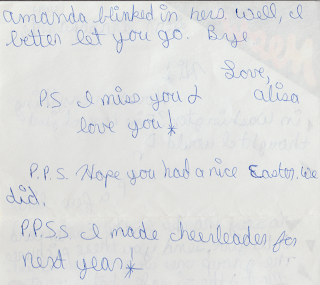 amanda blinked in hers. well, I
better let you go. Bye
Love,
alisa
P.S. I miss you &
love you!
P.P.S. Hope you had a nice Easter. We
did.
P.P.S.S I made cheerleader for
next year!